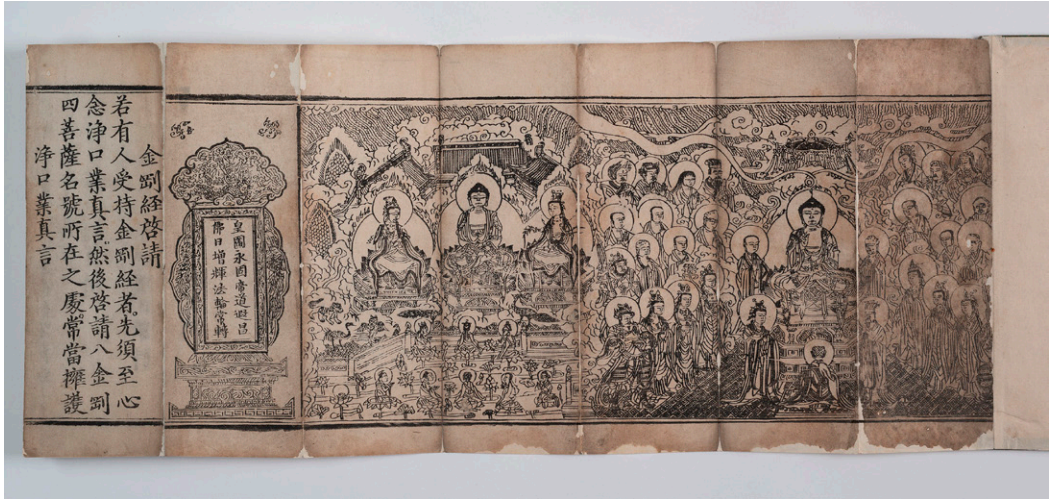 皇圖永固帝道遐昌
佛日增輝法輪常轉
金剛經啓請
若有人受持金剛經者先須至心
念淨口業真言然後啓請八金剛
四菩薩名號所在之處常當擁護
淨口業真言